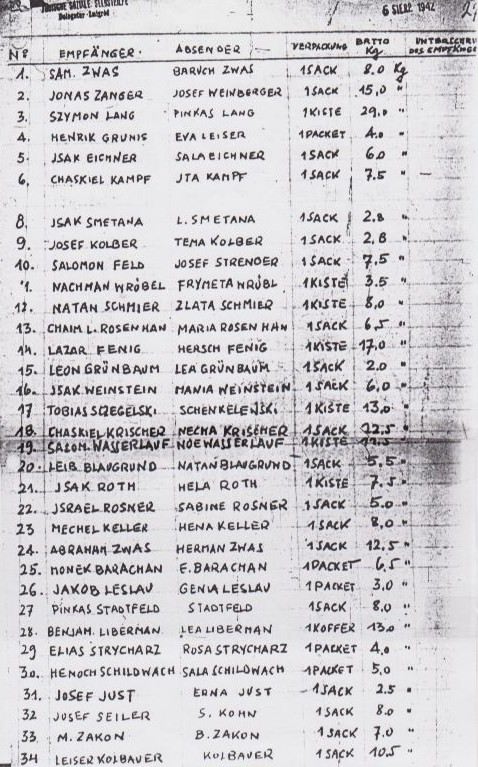 JÜDISCHE SOZIALE SELBSTHILFE 6 SIERP. 1942
Delegatur
Nº EMPFÄNGER. ABSENDER VERPACKUNG BATTO Kg UNTERSCHRI DES EMPFÄNGE
1. SAM. ZWAS BARUCH ZWAS 1SACK 8.0 Kg
2. JONAS ZANGER JOSEF WEINBERGER 1SACK 15,0 "
3. SZYMON LANG PINKAS LANG 1KISTE 29,0 "
4. HENRIK GRUNIS EVA LEISER 1PACKET 4.0 "
5. JSAK EICHNER SALA EICHNER 1SACK 6.0 "
6. CHASKIEL KAMPF JTA KAMPF 1SACK 7.5 "
8. JSAK SMETANA L. SMETANA 1SACK 2.8 "
9. JOSEF KOLBER TEMA KOLBER 1SACK 2,8 "
10. SALOMON FELD JOSEF STRENGER 1SACK 7,5 "
11. NACHMAN WRÓBEL FRYMETA WRÓBL 1KISTE 3.5 "
12. NATAN SCHMIER ZLATA SCHMIER 1KISTE 8,0 "
13. CHAIM L. ROSENHAN MARIA ROSENHAN 1SACK 6,5 "
14. LAZAR FENIG HERSCH FENIG 1KISTE 17,0 "
15. LEON GRÜNBAUM LEA GRÜNBAUM 1SACK 2.0 "
16. JSAK WEINSTEIN MANIA WEINSTEIN 1SACK 6,0 "
17 TOBIAS SZEGELSKI SCHENKELEWSKI 1KISTE 13,0 "
18. CHASKIEL KRISCHER NECHA KRISCHER 1SACK 12,5 "
19. SALOM. WASSERLAUF NOE WASSERLAUF 1KISTE
20. LEIB BLAUGRUND NATAN BLAUGRUND 1SACK 5,5 "
21. JSAK ROTH HELA ROTH 1KISTE 7,5 "
22. JSRAEL ROSNER SABINE ROSNER 1SACK 5.0 "
23 MECHEL KELLER HENA KELLER 1SACK 8,0 "
24. ABRAHAM ZWAS HERMAN ZWAS 1SACK 12,5 "
25. MONEK BARACHAN E. BARACHAN 1PACKET 6,5 "
26. JAKOB LESLAU GENIA LESLAU 1PACKET 3.0 "
27 PINKAS STADTFELD STADTFELD 1SACK 8.0 "
28. BENJAM. LIBERMAN LEA LIBERMAN 1KOFFER 13.0 "
29 ELIAS STRYCHARZ ROSA STRYCHARZ 1PACKET 4,0 "
30. HENOCH SCHILDWACH SALA SCHILDWACH 1PACKET 5.0 "
31. JOSEF JUST ERNA JUST 1SACK 2.5 "
32 JOSEF SEILER S. KOHN 1SACK 8.0 "
33. M. ZAKON B. ZAKON 1SACK 7.0 "
34 LEISER KOLBAUER KOLBAUER 1SACK 10.5 "